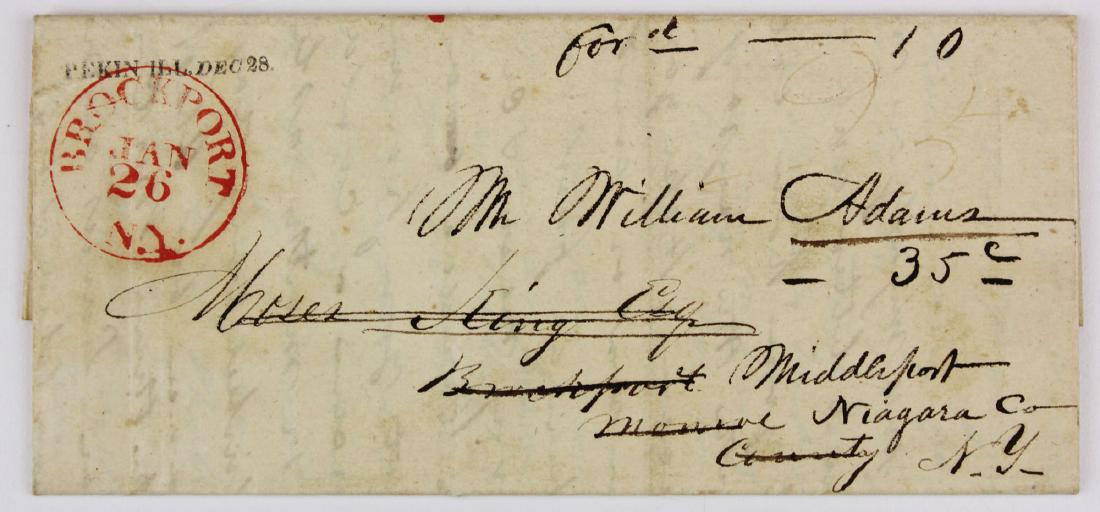 For.d — 10
PEKIN ILL. DEC 28.
BROCKPORT
JAN
26
N.Y.
Mr William Adams
— 35 c
Moses King Esq
Brockport Middleport
Monroe Niagara Co
County N.Y-